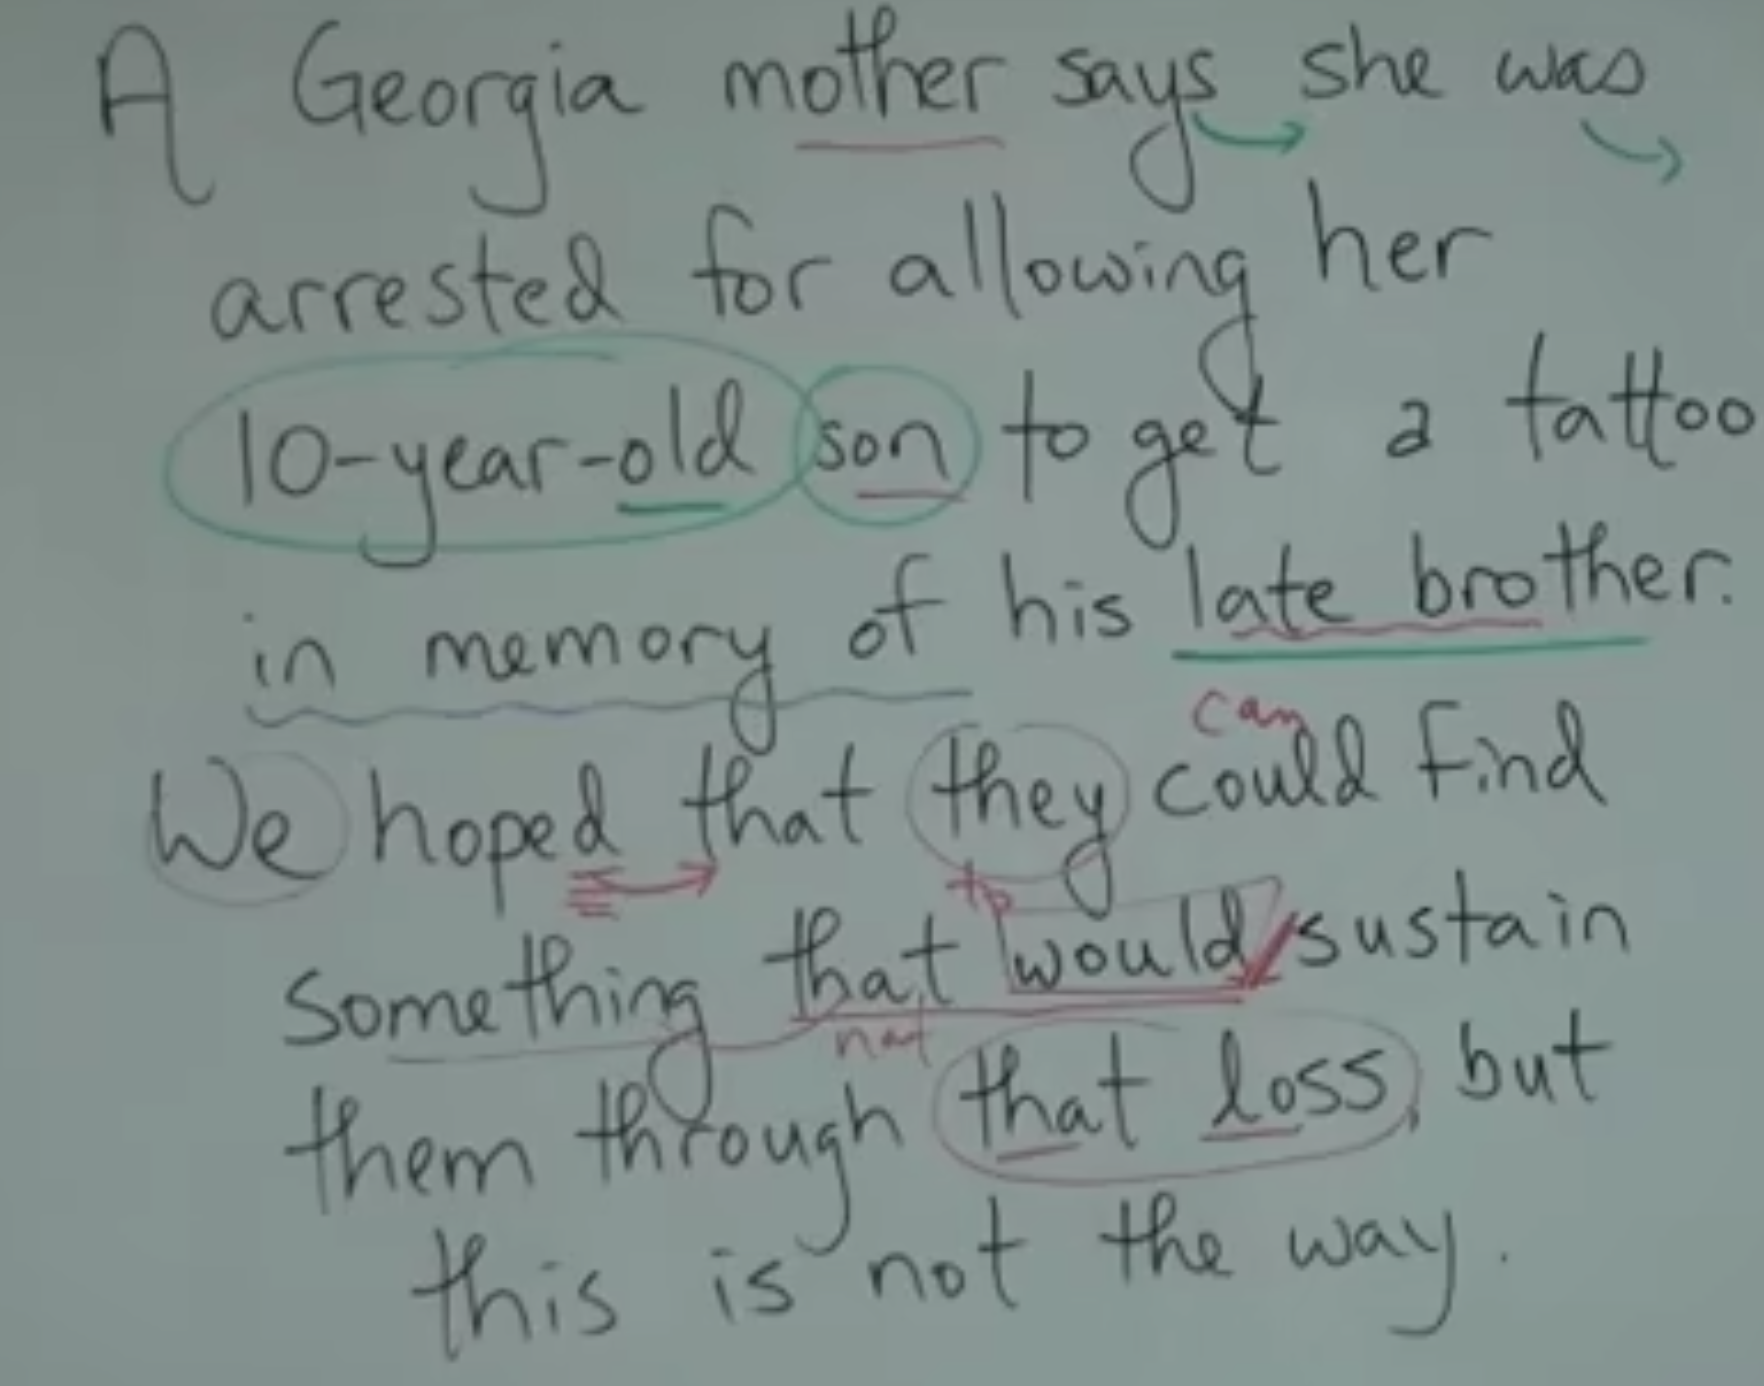 A Georgia mother says she was
arrested for allowing her
10-year-old son to get a tattoo
in memory of his late brother.
can
We hoped that they could find
to
something that would sustain
not
them through that loss, but
this is not the way.